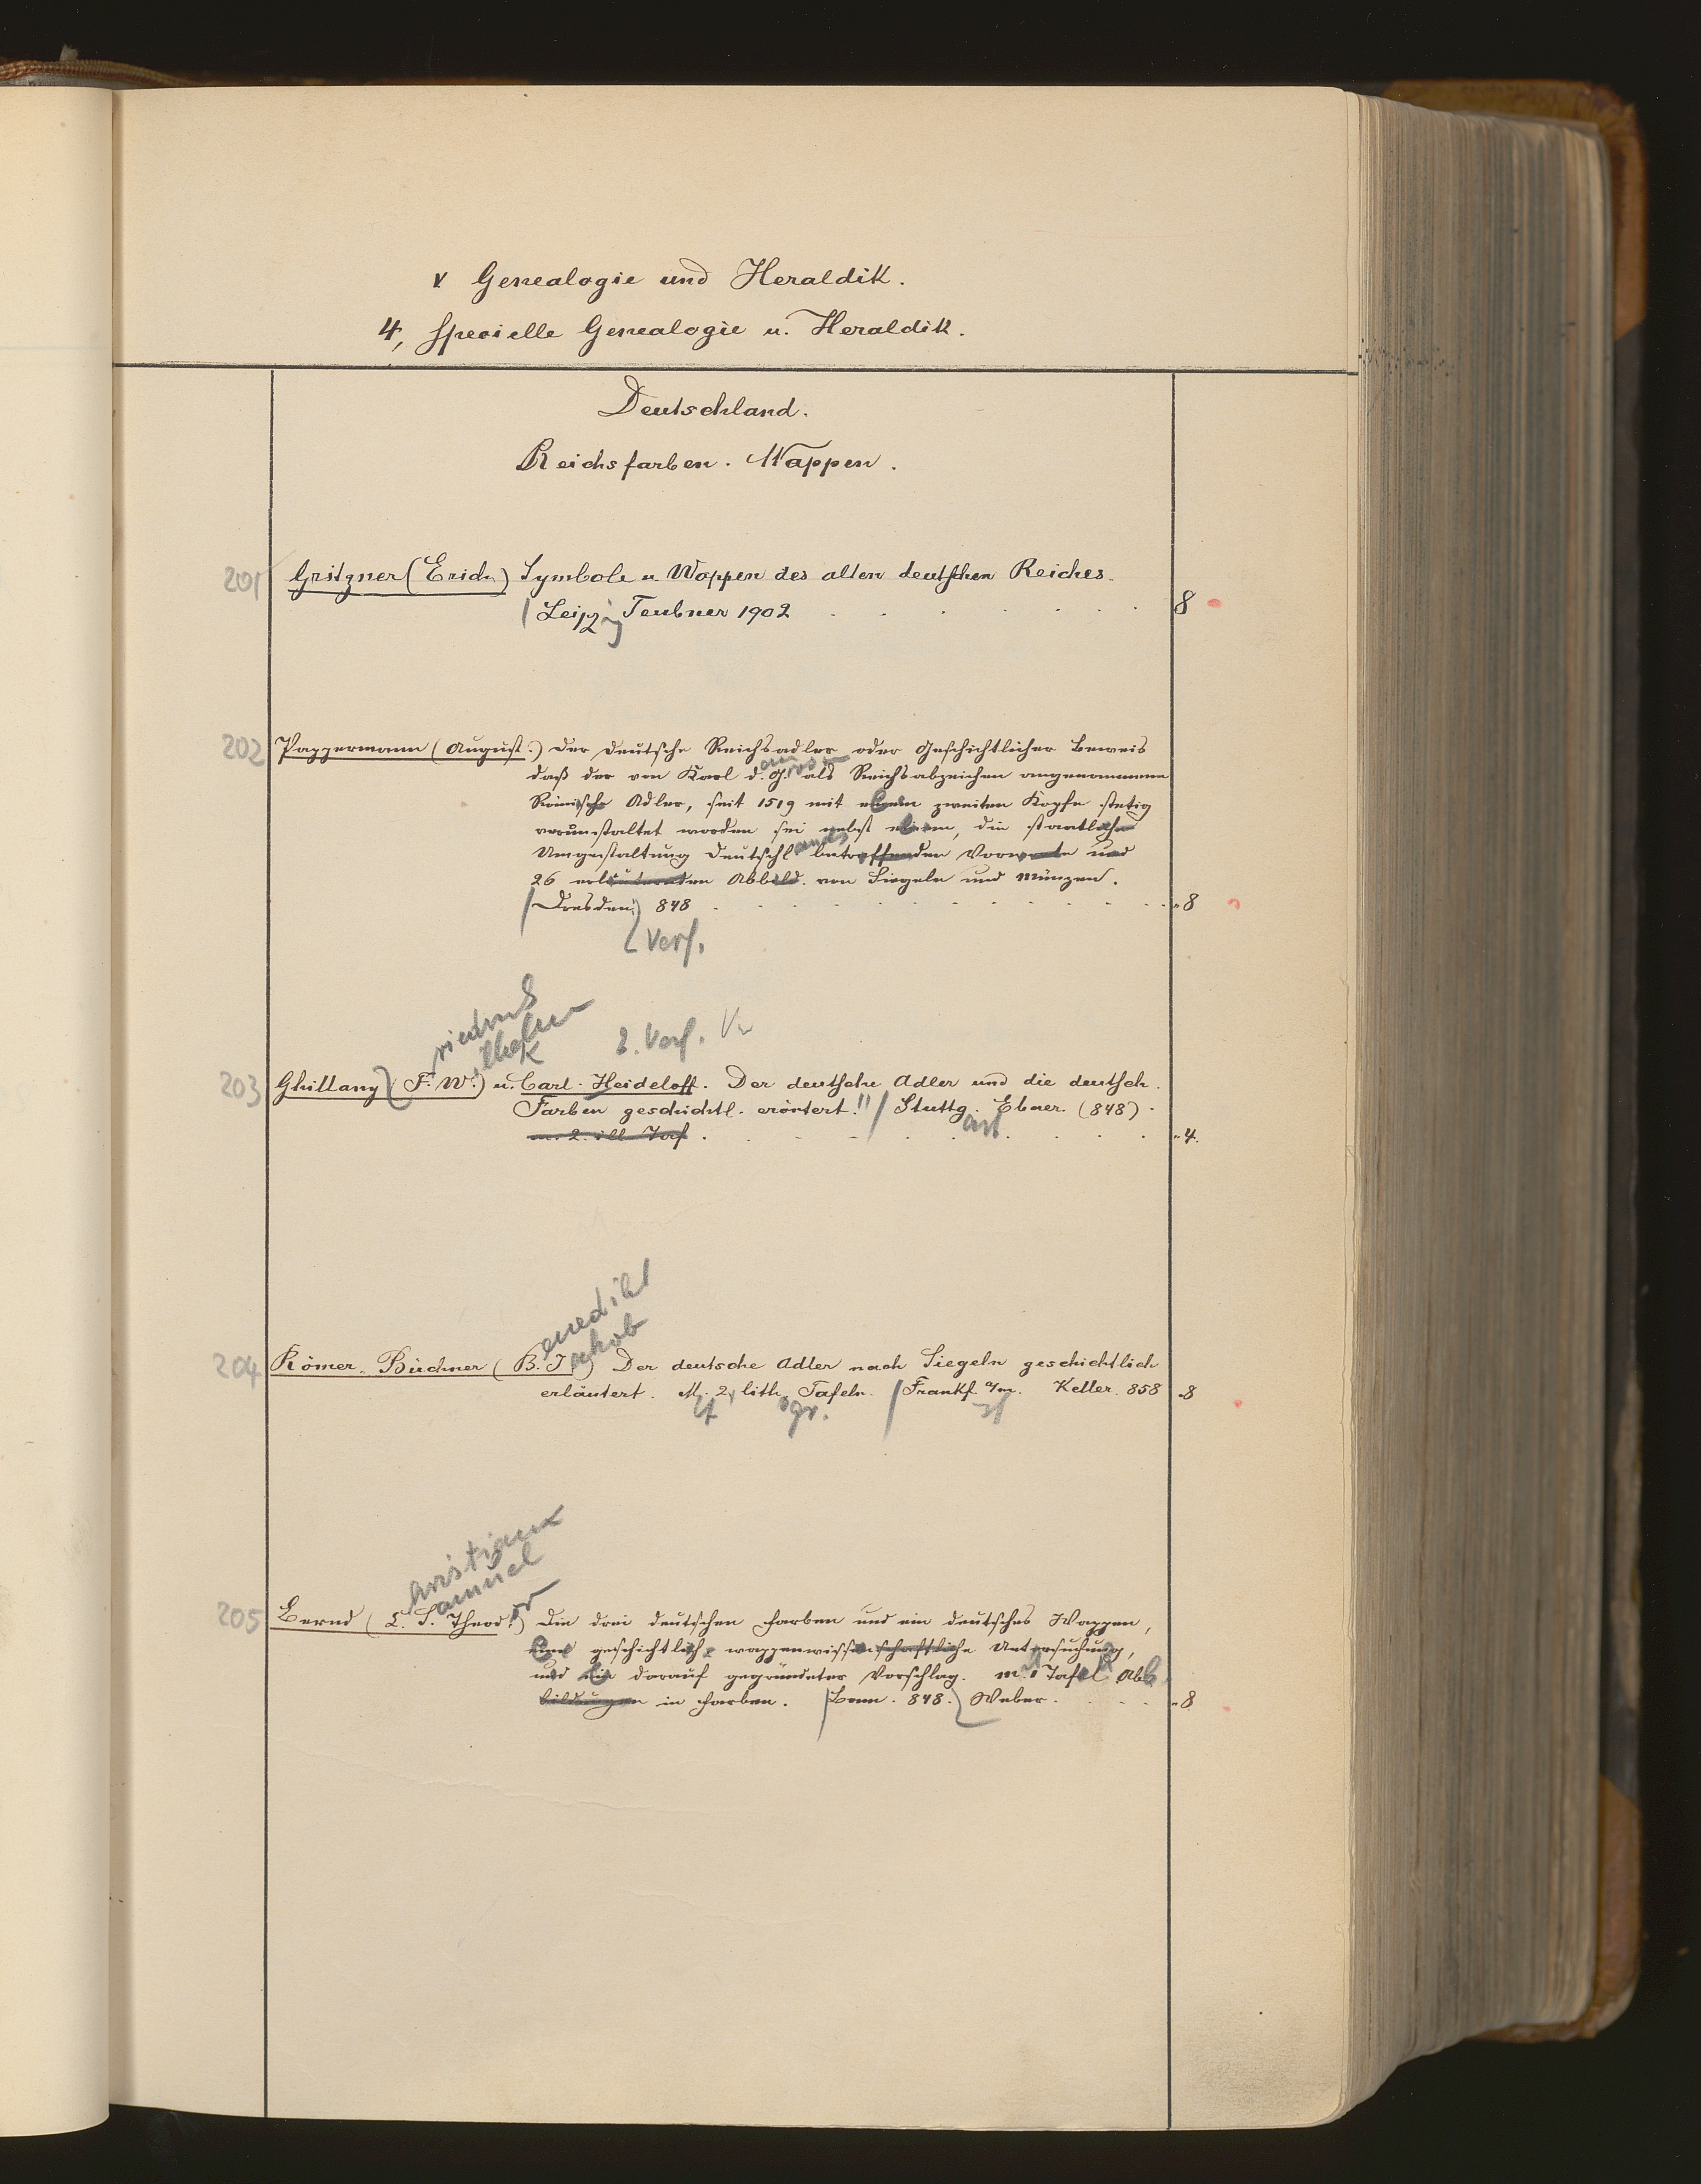 V. Genealogie und Heraldik.
4, Specielle Genealogie u. Heraldik.
Deutschland.
Reichsfarben. Wappen.
201 Gritzner (Erich) Symbole u. Wappen des alten deutschen Reiches.
Leipzig Teubner 1902 8
202 Pappermann (August.) Der deutsche Reichsadler oder geschichtlicher Beweis
daß der von Karl d. Grossen als Reichsabzeichen angenommene
Römische Adler, seit 1519 mit einem zweiten Kopfe stetig
verunstaltet worden sei nebst einem, die staatliche
Umgestaltung Deutschlands betreffenden Vorworte und
26 erläuternden Abbild. von Siegeln und Münzen.
Dresden 848 "8
Verf.
riedrich
ilhelm
2. Verf. Vw
203 Ghillany (F. W.) u. Carl Heideloff. Der deutsche Adler und die deutsch.
Farben geschichtl. erörtert!! Stuttg. Ebner. (848)
art
m. 2 ill. Taf. "4.
enedikt
akob
204 Römer-Büchner (B. J.) Der deutsche Adler nach Siegeln geschichtlich
erläutert. M. 2, lith. Tafeln. Frankf. a/m. Keller. 858 "8
gr.
hristian
amuel
205 Bernd (C. S. Theodor) Die drei deutschen Farben und ein deutsches Wappen,
Eine geschichtlich-wappenwissenschaftliche Untersuchung,
und ein darauf gegründeter Vorschlag. m. 1 Tafel Abb
bildungen in Farben. Bonn. 848. Weber. "8